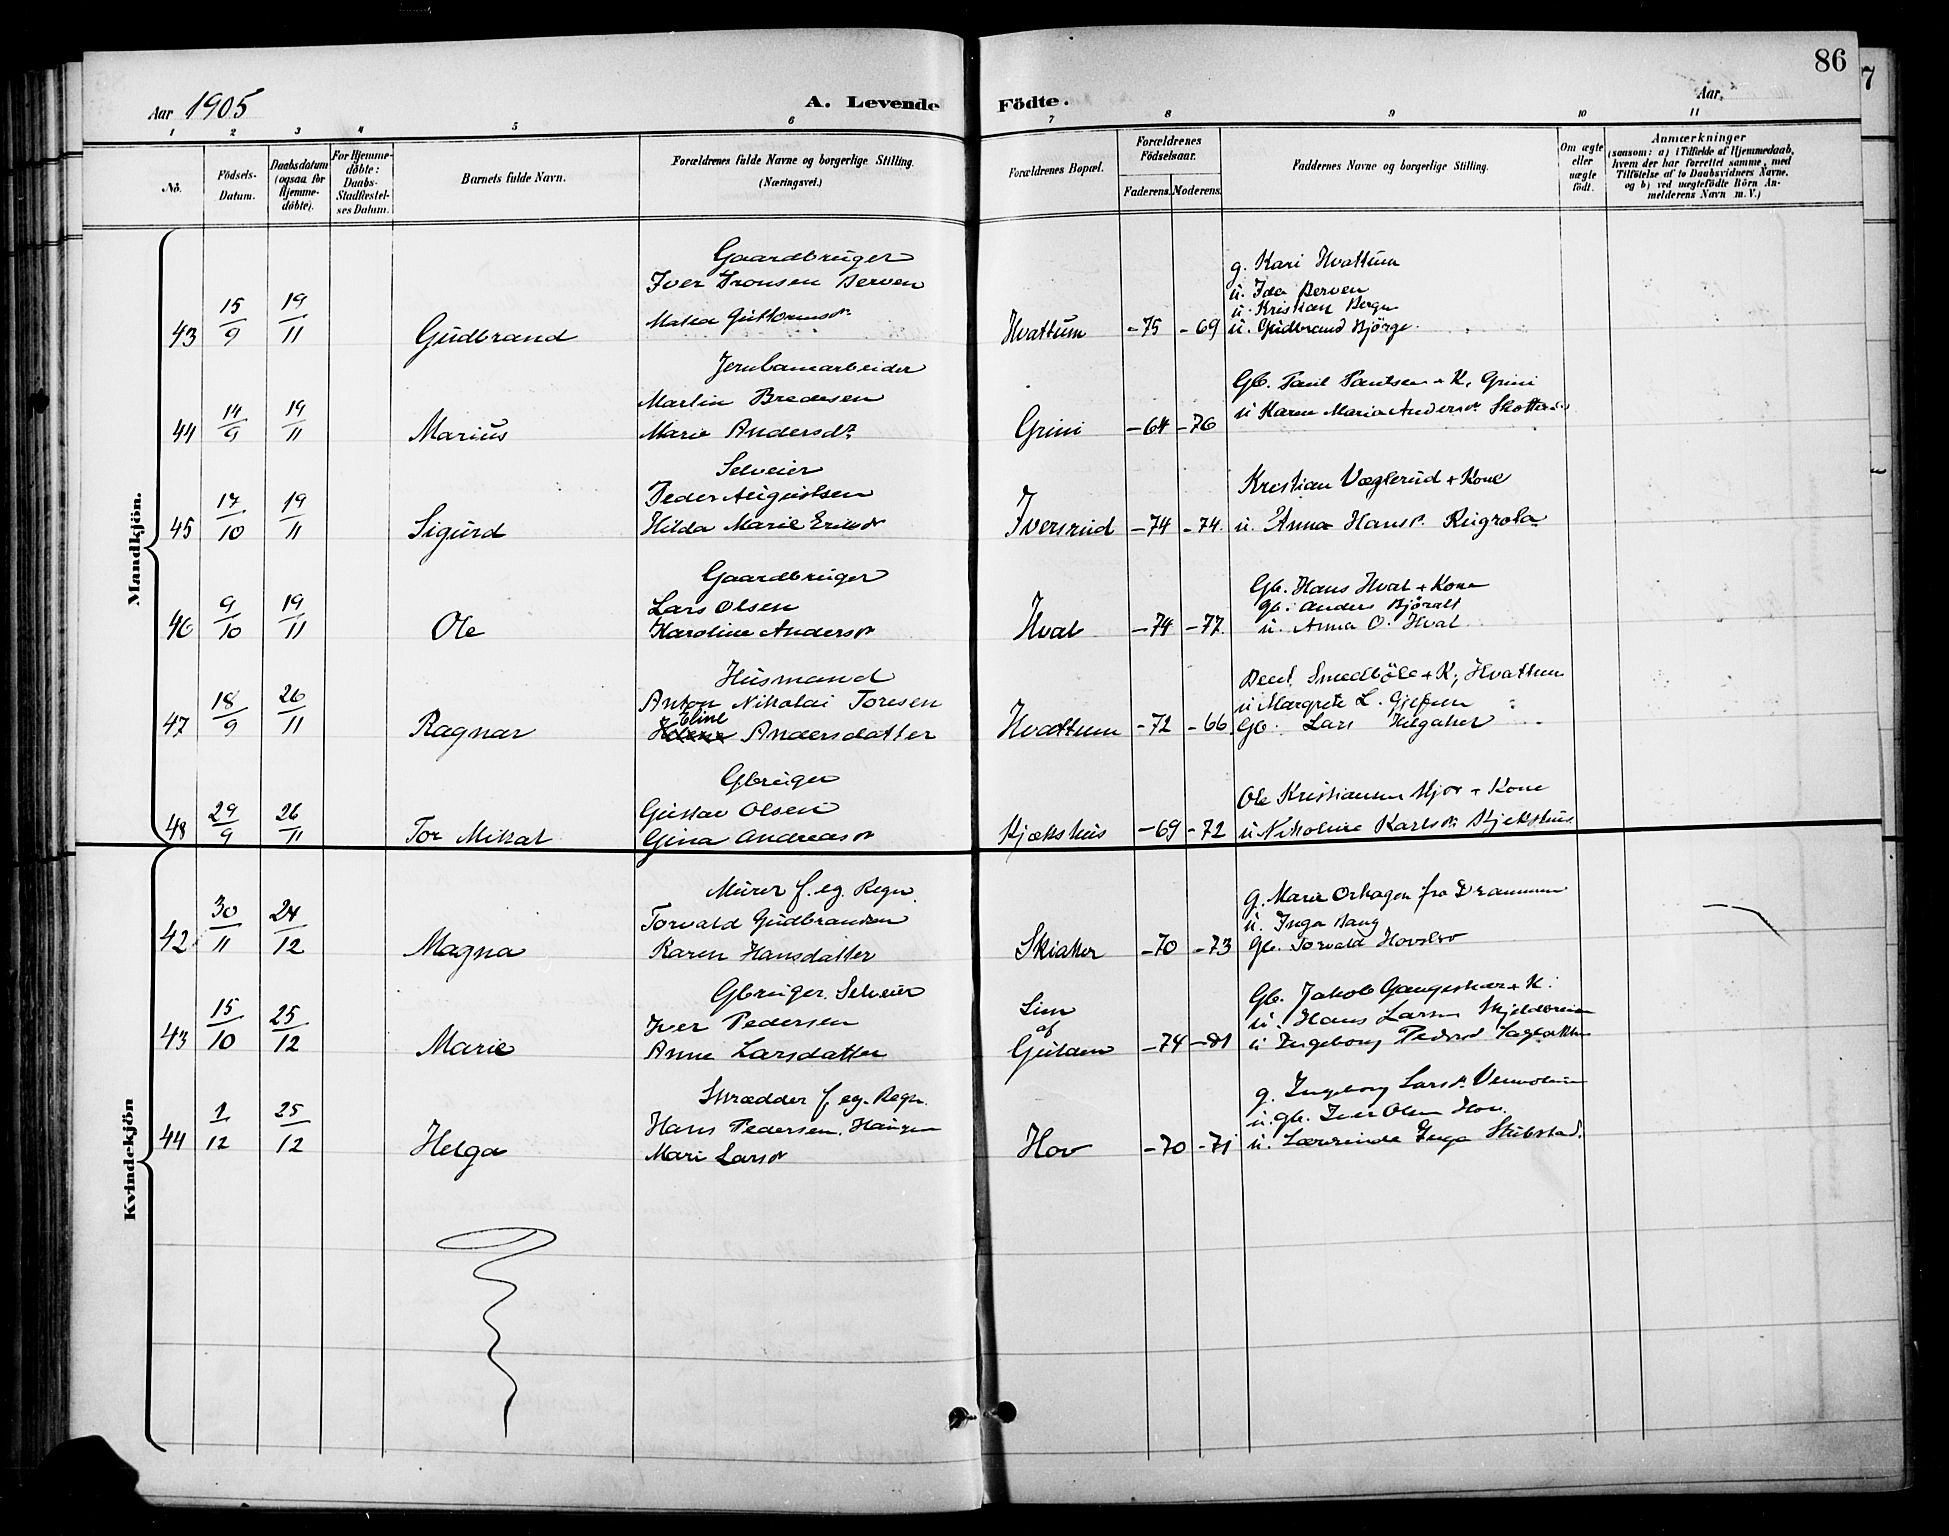 86
7
Aar 1905
A. Levende Födte.
Aar
1 2 3 4 5 6 7 8 9 10 11
No. Födsels-Datum. Daabsdatum (ogsaa for Hjemme-döbte). For Hjemme-döbte: Daabs-Stadfæstel-ses Datum. Barnets fulde Navn. Forældrenes fulde Navne og borgerlige Stilling. (Næringsvei.) Forældrenes Bopæl. Forældrenes Födselsaar. Faderens. Moderens. Faddernes Navne og borgerlige Stilling. Om ægte eller uægte födt. Anmærkninger
(saasom: a) i Tilfælde af Hjemmedaab, hvem der har forrettet samme, med Tilföielse af to Daabsvidners Navne. og b) ved uægtefödte Börn An-melderens Navn m. V.)
Mandkjön.
Gaardbruger
Iver Tronsen Berven
43 15/9 19/11 Gudbrand Hvattum -75 -69
g. Kari Hvattum
u. Ida Berven
u. Kristian Berge
u. Gudbrand Bjørge
Jernbanearbeider
Martin Bredesen
44 14/9 19/11 Marius Marie Andersdr Grini -64 -76
u Karen Marie Andersdr
Selveier
Peder Augustsen
45 17/10 19/11 Sigurd Hilda Marie Ericsdr Iversrud -74 -74
Kristian Væglerud + Kone
u. Anna Hansd.
Gaardbruger
Lars Olsen
46 9/10 19/11 Ole Karoline Andersdr Hval -74 -77
Gb. Hans Hval + Kone
gb. Anders
u. Anna O. Hval
Husmand
Anton Nikolai Toresen
Eline
47 18/9 26/11 Ragnar Andersdatter Hvattum -72 -66
Smedböle + K, Hvattum
u Margrete L.
Gb. Lars
Gbruger
Gustav Olsen
48 29/9 26/11 Tor Mikal Gina Andreasdr Kjækshus -69 -72
Ole Kristiansen + Kone
u Nikoline Karlsdr Kjekshus
Kvindekjön
Murer f. eg. Regn.
Torvald Gudbransen
42 30/11 24/12 Magna Karen Hansdatter Skiaker -70 -73
g. Marie fra Drammen
u. Inga Haug
Gb. Torvald
Gbruger. Selveier
Iver Pedersen
43 15/10 25/12 Marie Anne Larsdatter
Lien
af
Gulden -74 -81
Gb. Jakob + K.
u. Hans Larsen
u Ingeborg
Skrædder f. eg. Regn.
Hans Pedersen. Haugen
44 1/12 25/12 Helga Mari Larsdr Hov -70 -71
g. Ingeborg Larsd.
u. gb. Iver Olsen Hov.
u. Lærerinde Inga Stubstad.